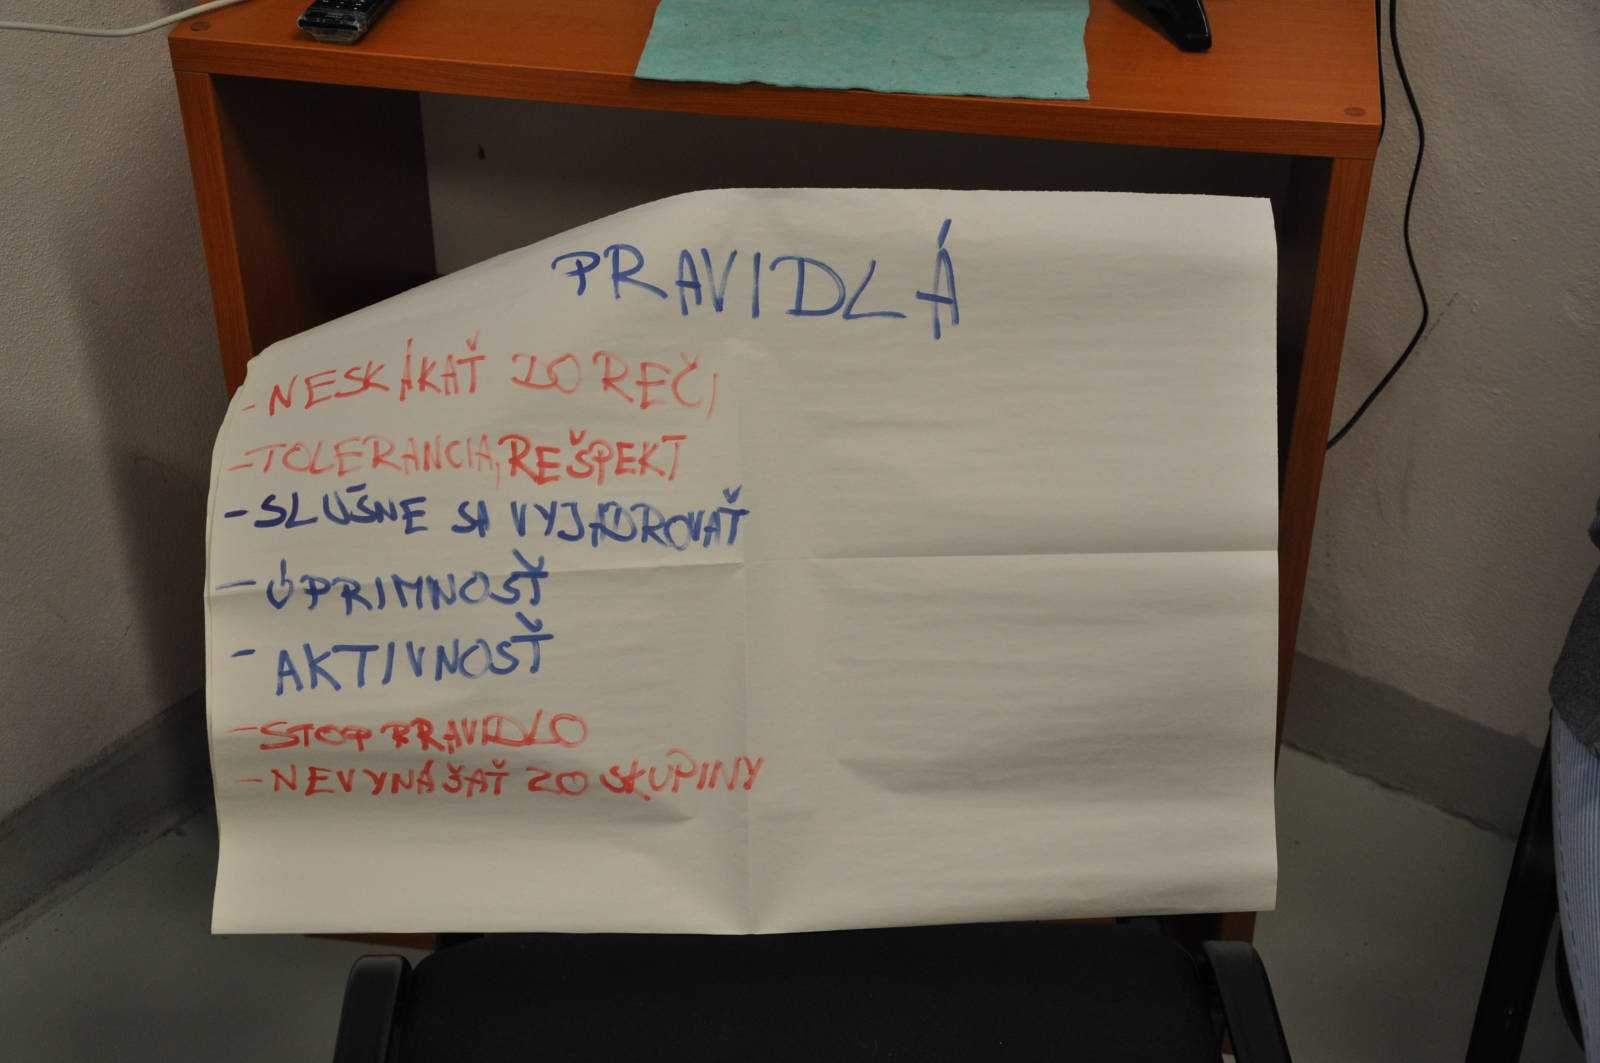 PRAVIDLÁ
- NESKÁKAŤ DO REČI
- TOLERANCIA, REŠPEKT
- SLUŠNE SA VYJADROVAŤ
- ÚPRIMNOSŤ
- AKTIVNOSŤ
- STOP PRAVIDLO
- NEVYNÁŠAŤ ZO SKUPINY